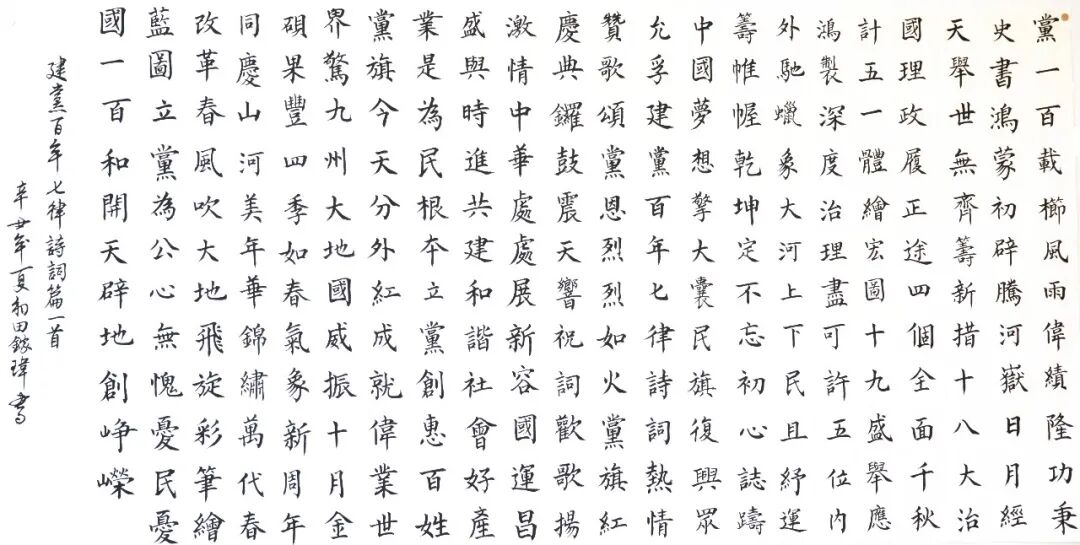 黨一百載櫛風雨偉績隆功秉
史書鴻蒙初辟騰河嶽日月經
天舉世無齊籌新措十八大治
國理政履正途四個全面千秋
計五一體繪宏圖十九盛舉應
鴻製深度治理盡可許五位內
外馳蠟象大河上下民且紓運
籌帷幄乾坤定不忘初心誌躊
中國夢想擎大囊民旗復興眾
允孚建黨百年七律詩詞熱情
贊歌頌黨恩烈烈如火黨旗紅
慶典鑼鼓震天響祝詞歡歌揚
激情中華處處展新容國運昌
盛與時進共建和諧社會好產
業是為民根本立黨創惠百姓
黨旗今天分外紅成就偉業世
界驚九州大地國威振十月金
碩果豐四季如春氣象新周年
同慶山河美年華錦繡萬代春
改革春風吹大地飛旋彩筆繪
藍圖立黨為公心無愧憂民憂
國一百和開天辟地創崢嶸
建黨百年七律詩詞篇一首
辛丑年夏初田瑋書